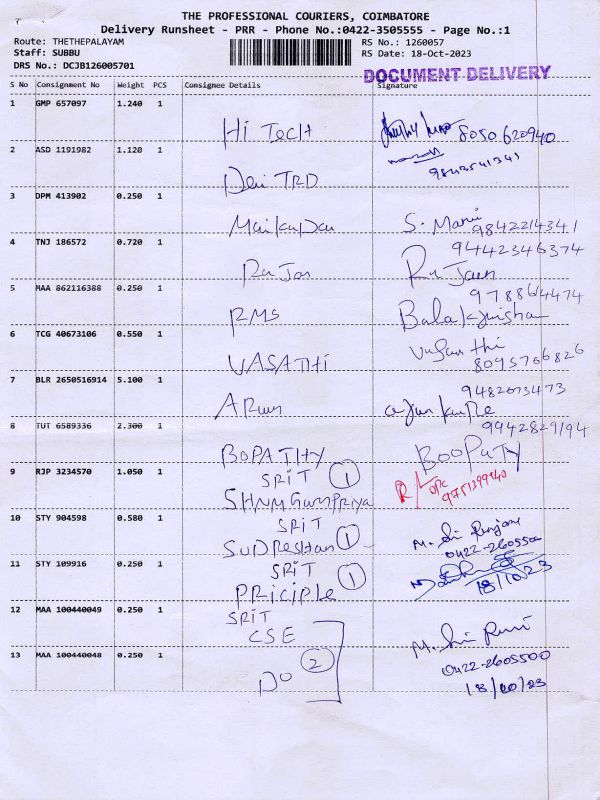 THE PROFESSIONAL COURIERS, COIMBATORE
Delivery Runsheet - PRR - Phone No.:0422-3505555 - Page No.:1
Route: THETHEPALAYAM RS No.: 1260057
Staff: SUBBU RS Date: 18-Oct-2023
DRS No.: DCJB126005701
DOCUMENT DELIVERY
S No Consignment No Weight PCS Consignee Details Signature
1 GMP 657097 1.240 1
Hi TecH 8050620940
2 ASD 1191982 1.120 1
9843541341
Devi TRD
3 DPM 413902 0.250 1
S. Mani 9842214341
4 TNJ 186572 0.720 1
9442346374
Rajan Rajan
5 MAA 862116388 0.250 1
9788664474
RMS Balakrishan
6 TCG 40673106 0.550 1
VASATHI Vasanthi 8095766826
7 BLR 2650516914 5.100 1
9482073473
ARUN
8 TUT 6589336 2.300 1
9942829194
BOPATHY BOOPATY
9 RJP 3234570 1.050 1
SRIT 1
9751399940
10 STY 904598 0.580 1
SRIT 1
0422-2605500
11 STY 109916 0.250 1
SRIT 1
PRICIPLE 18/10/23
12 MAA 100440049 0.250 1
SRIT
CSE
13 MAA 100440048 0.250 1
DO 2
0422-2605500
18/10/23